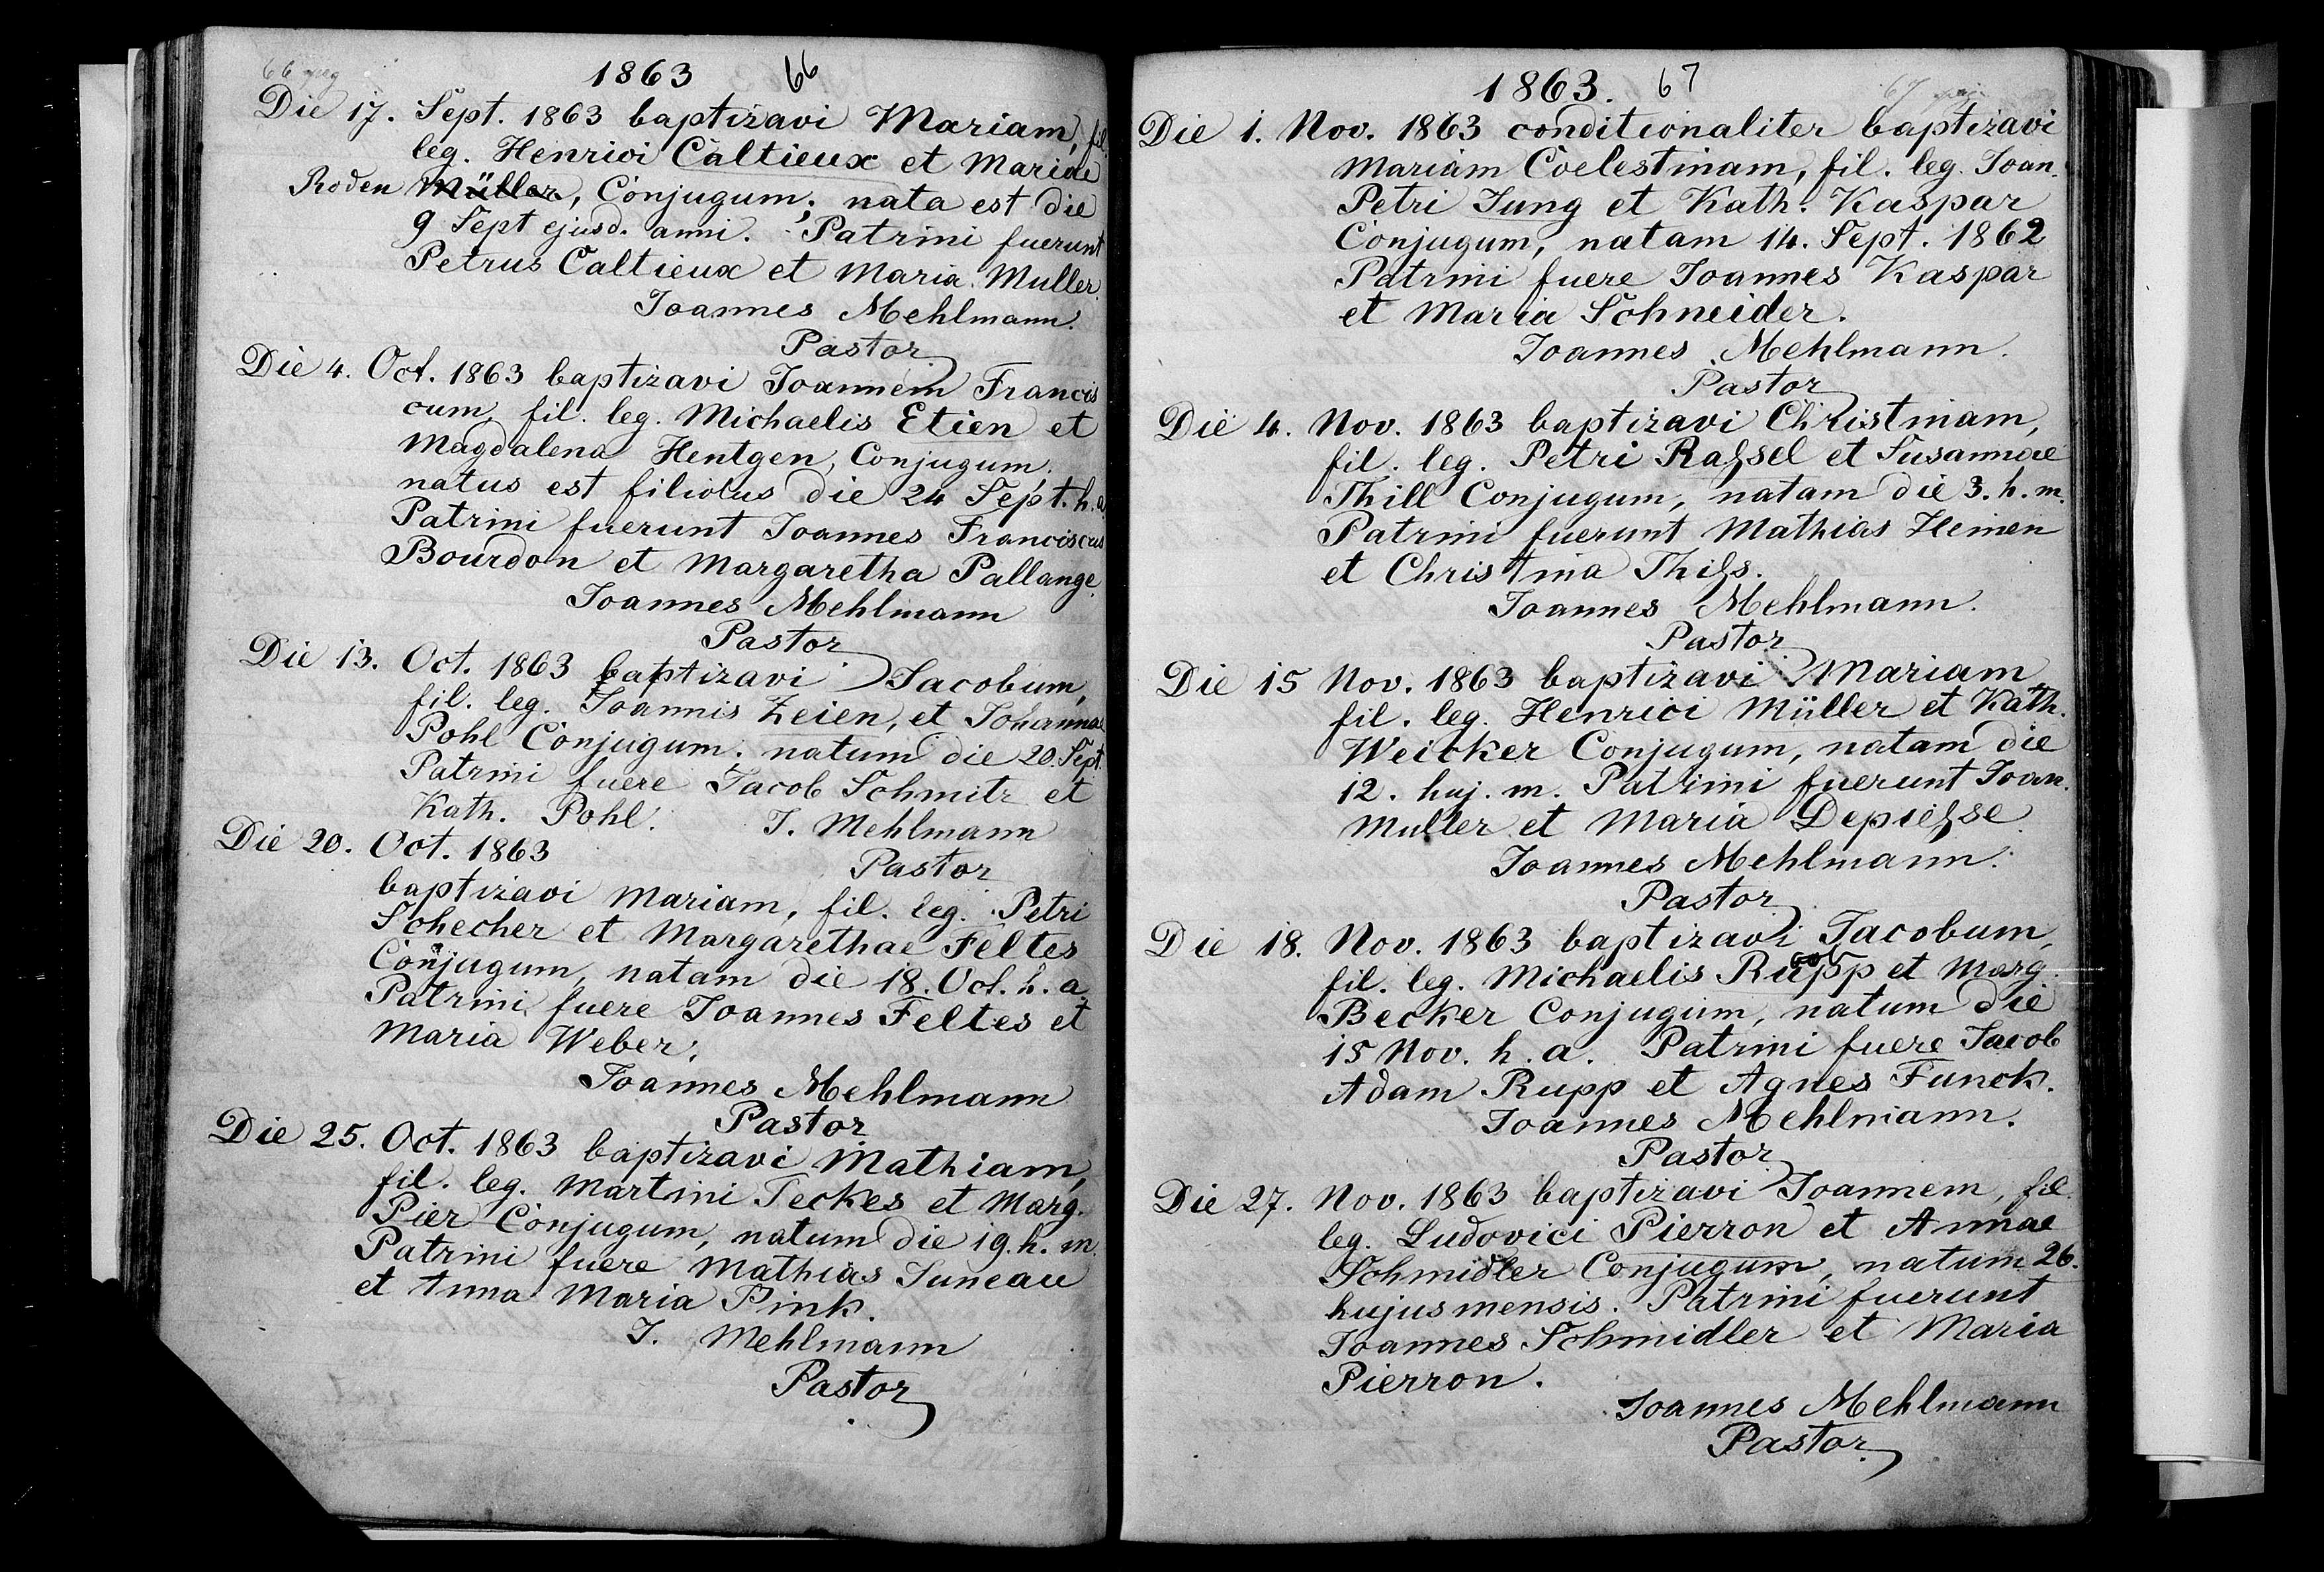 1863 66
Die 17. Sept. 1863 baptizavi Mariam, fil.
leg. Henrici Caltieux et Mariae
Roden Müller, Conjugum; nata est die
9 Sept ejusd. anni. Patrini fuerunt
Petrus Caltieux et Maria Muller.
Joannes Mehlmann.
Pastor
Die 4. Oct. 1863 baptizavi Joannem Francis
cum, fil. leg. Michaelis Etien et
Magdalena Hentgen, Conjugum;
natus est filiolus die 24 Sept. h. a.
Patrini fuerunt Joannes Franciscus
Bourdon et Margaretha Pallange.
Joannes Mehlmann
Pastor
Die 13. Oct. 1863 baptizavi Jacobum,
fil. leg. Joannis Zeien, et Johannae
Pohl Conjugum; natum die 20. Sept.
Patrini fuere Jacob Schmitz et
Kath. Pohl. J. Mehlmann
Pastor
Die 20. Oct. 1863
baptizavi Mariam, fil. leg. Petri
Schecher et Margarethae Feltes
Conjugum, natam die 18. Oct. h. a.
Patrini fuere Joannes Feltes et
Maria Weber.
Joannes Mehlmann
Pastor
Die 25. Oct. 1863 baptizavi Mathiam,
fil. leg. Martini Teckes et Marg.
Pier Conjugum, natum die 19. h. m.
Patrini fuere Mathias Juneau
et Anna Maria Pink.
J. Mehlmann
Pastor
1863. 67
Die 1. Nov. 1863 conditionaliter baptizavi
Mariam Coelestinam, fil. leg. Joan.
Petri Jung et Kath. Kaspar
Conjugum, natam 14. Sept. 1862
Patrini fuere Joannes Kaspar
et Maria Schneider.
Joannes Mehlmann.
Pastor
Die 4. Nov. 1863 baptizavi Christinam,
fil. leg. Petri Raßsel et Susannae
Thill Conjugum, natam die 3. h. m.
Patrini fuerunt Mathias Heinen
et Christina Thilß.
Joannes Mehlmann.
Pastor
Die 15 Nov. 1863 baptizavi Mariam
fil. leg. Henrici Müller et Kath.
Weicker Conjugum, natam die
12. huj. m. Patrini fuerunt Joan.
Muller et Maria Depießse.
Joannes Mehlmann.
Pastor
Die 18. Nov. 1863 baptizavi Jacobum,
fil. leg. Michaelis Rupp et Marg.
Becker Conjugum, natum die
15 Nov. h. a. Patrini fuere Jacob
Adam Rupp et Agnes Funck.
Joannes Mehlmann.
Pastor
Die 27. Nov. 1863 baptizavi Joannem, fil.
leg. Ludovici Pierron et Annae
Schmidler Conjugum, natum 26.
hujus mensis. Patrini fuerunt
Joannes Schmidler et Maria
Pierron.
Joannes Mehlmann
Pastor